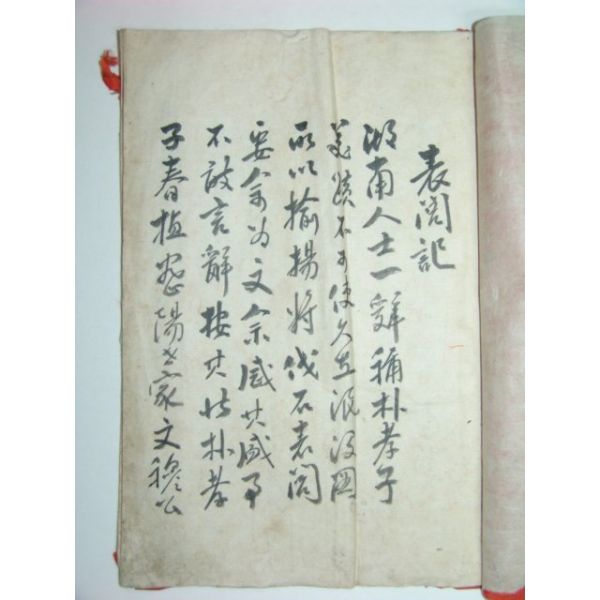 表閭記
湖南人士一辭稱朴孝子
美蹟不可使久在泯沒圖
所以揄揚將伐石表閭
要余为文余感其盛事
不敢言辭按其狀朴孝
子春植密陽世家文穆公